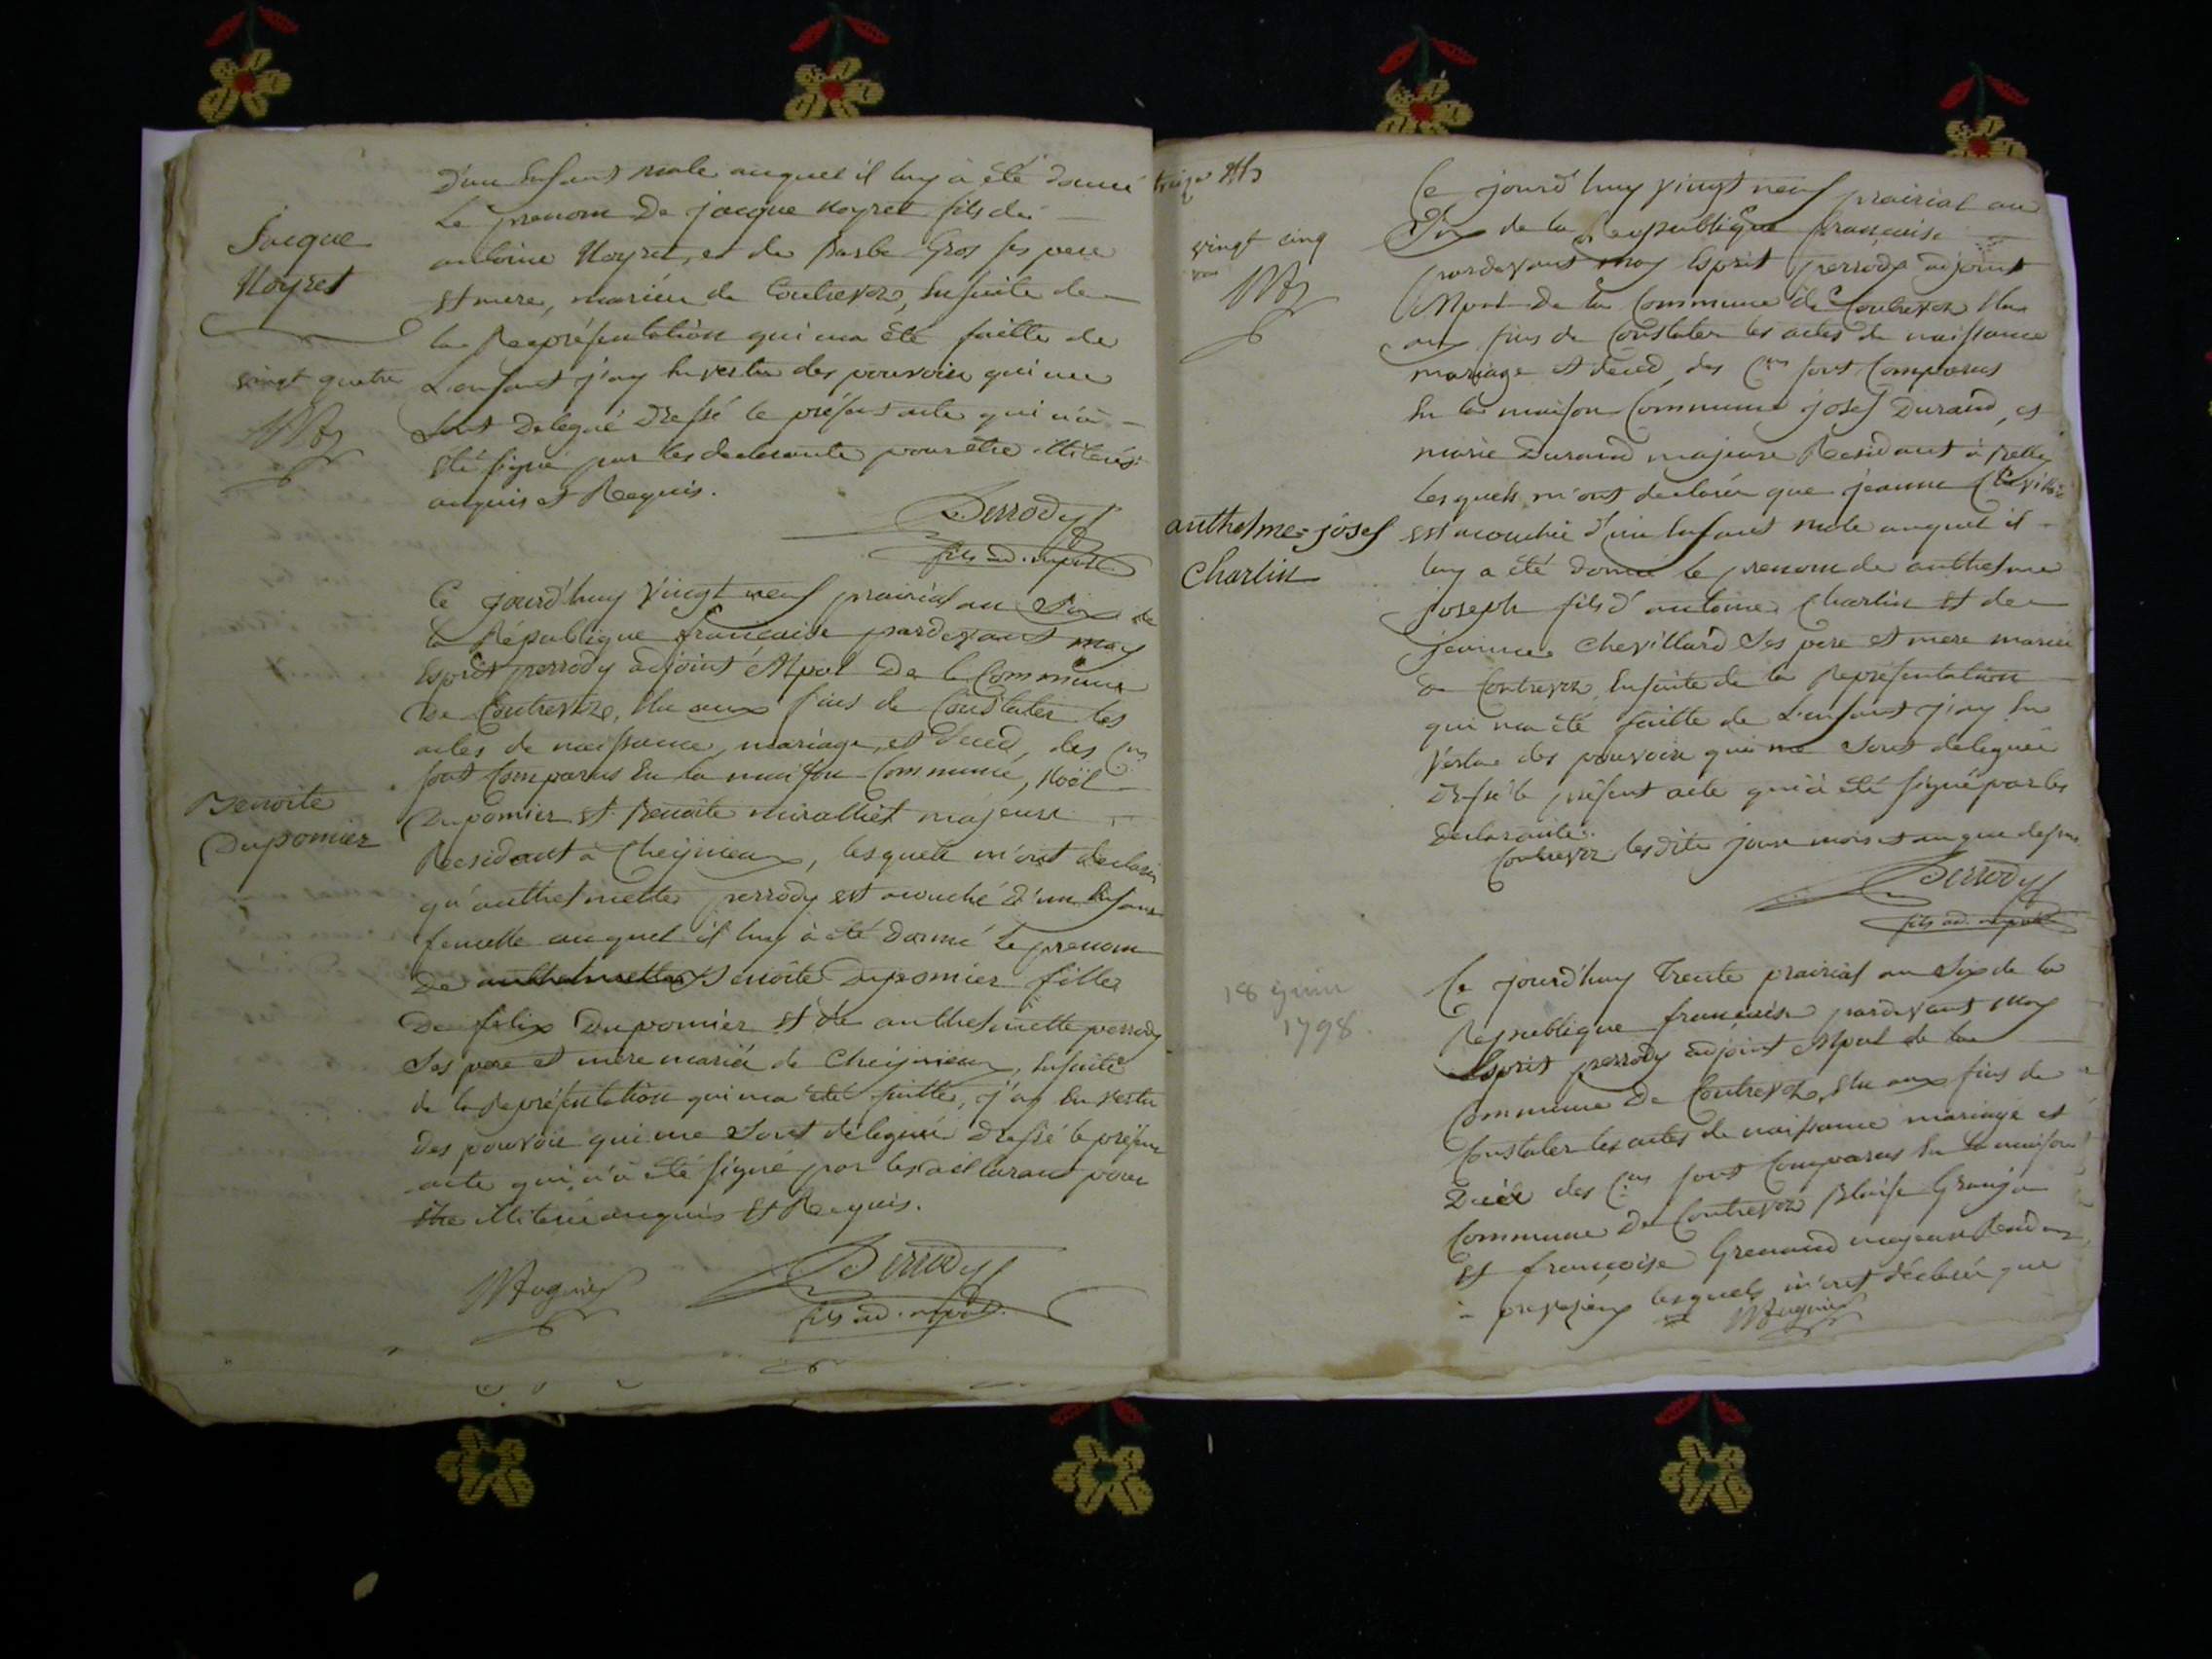 D'un Enfant male auquel il luy à été donné
Le prenom De jacque Noyret fils de
Jacque
Noyret
antoine Noyret, et de Barbe Gros ses pere
et mere, mariéu de Contrevoz, Ensuite de
la Représentation qui ma été faitte de
vingt quatre
L'enfant j'ay En vertu des pouvoir qui me
sont Delegué Dressé le présent acte qui n'a
été signé par les declarants pour etre illiterés
enquis et Requis.
Perrody
fils ad. mpal.
Ce jourd'huy vingt neuf prairial an Six de
la République francaise pardevant moy
Esprit perrody adjoint Mpal De la Commune
De Contrevoz, Elu aux fins de Constater les
actes de naissance, mariage, et deced, des Cns
sont Comparus En la maison Commune, Noël
Benoite
Dupomier
Dupomier et Benoite miralliet majeurs
Residant a Cheynieux, lesquels m'ont declaré
qu'anthelmette perrody est acouché d'un Enfant
femelle auquel il luy à été donné le prenom
De anthelmette Benoite Dupomier filles
De felix Dupomier et de anthelmette perrody
Ses pere et mere mariés de Cheynieux, Ensuite
de la Représentation qui ma été faitte, j'ay En vertu
des pouvoir qui me sont délegués dressé le présent
acte qui n'à été signé par les déclarant pour
etre illiteré enquis et Requis.
MHugnier Perrody
fils ad. mpal.
treize
vingt cinq
anthelme=josef
Charlin
18 juin
1798.
Ce jourd'huy vingt neuf prairial an
Six de la Republique francaise
pardevant moy Esprit perrody adjoint
Mpal De la Commune de Contrevoz Elu
aux fins de Constater les actes de naissance
mariage et deced, des Cns sont Comparus
En la maison Commune josef Durand, et
marie Durand majeurs Residant à
lesquels m'ont declarée que jeanne
est acouchée d'un Enfant male auquel il
luy a été donné le prenom de anthelme
joseph fils d'antoine Charlin et de
jeanne Chevillard Ses pere et mere mariés
de Contrevoz, Ensuite de la Représentation
qui ma été faitte de L'enfant j'ay En
Vertu des pouvoir qui me Sont deleguée
Dressé le présent acte qui à été signé par les
declarants.
Contrevoz les dits jour mois et an que dessus
Perrody
fils ad. mpal
Ce jourd'huy trente prairial an Six de la
Republique francaise pardevant moy
Esprit perrody adjoint Mpal de la
Commune De Contrevoz, Elu aux fins de
Constater les actes de naissance mariage et
Décè des Cns sont Comparus En la maison
Commune De Contrevoz Blaise Granjon
et françoise Grenand majeurs Residant
à lesquels m'ont déclarée que
MHugnier